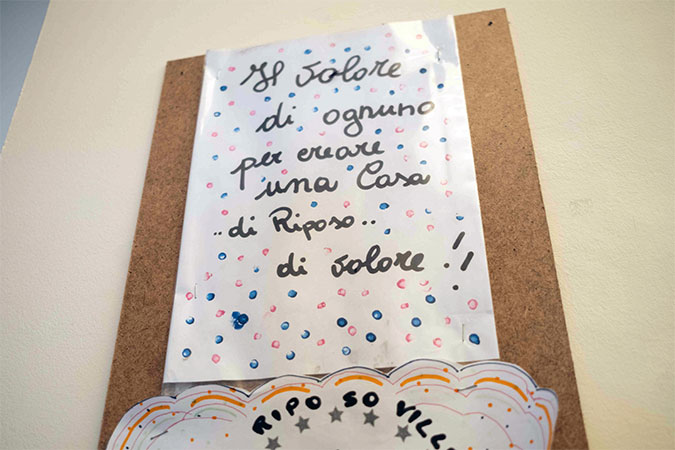 Il valore
di ognuno
per creare
una Casa
..di Riposo..
di valore !!
RIPOSO VILL